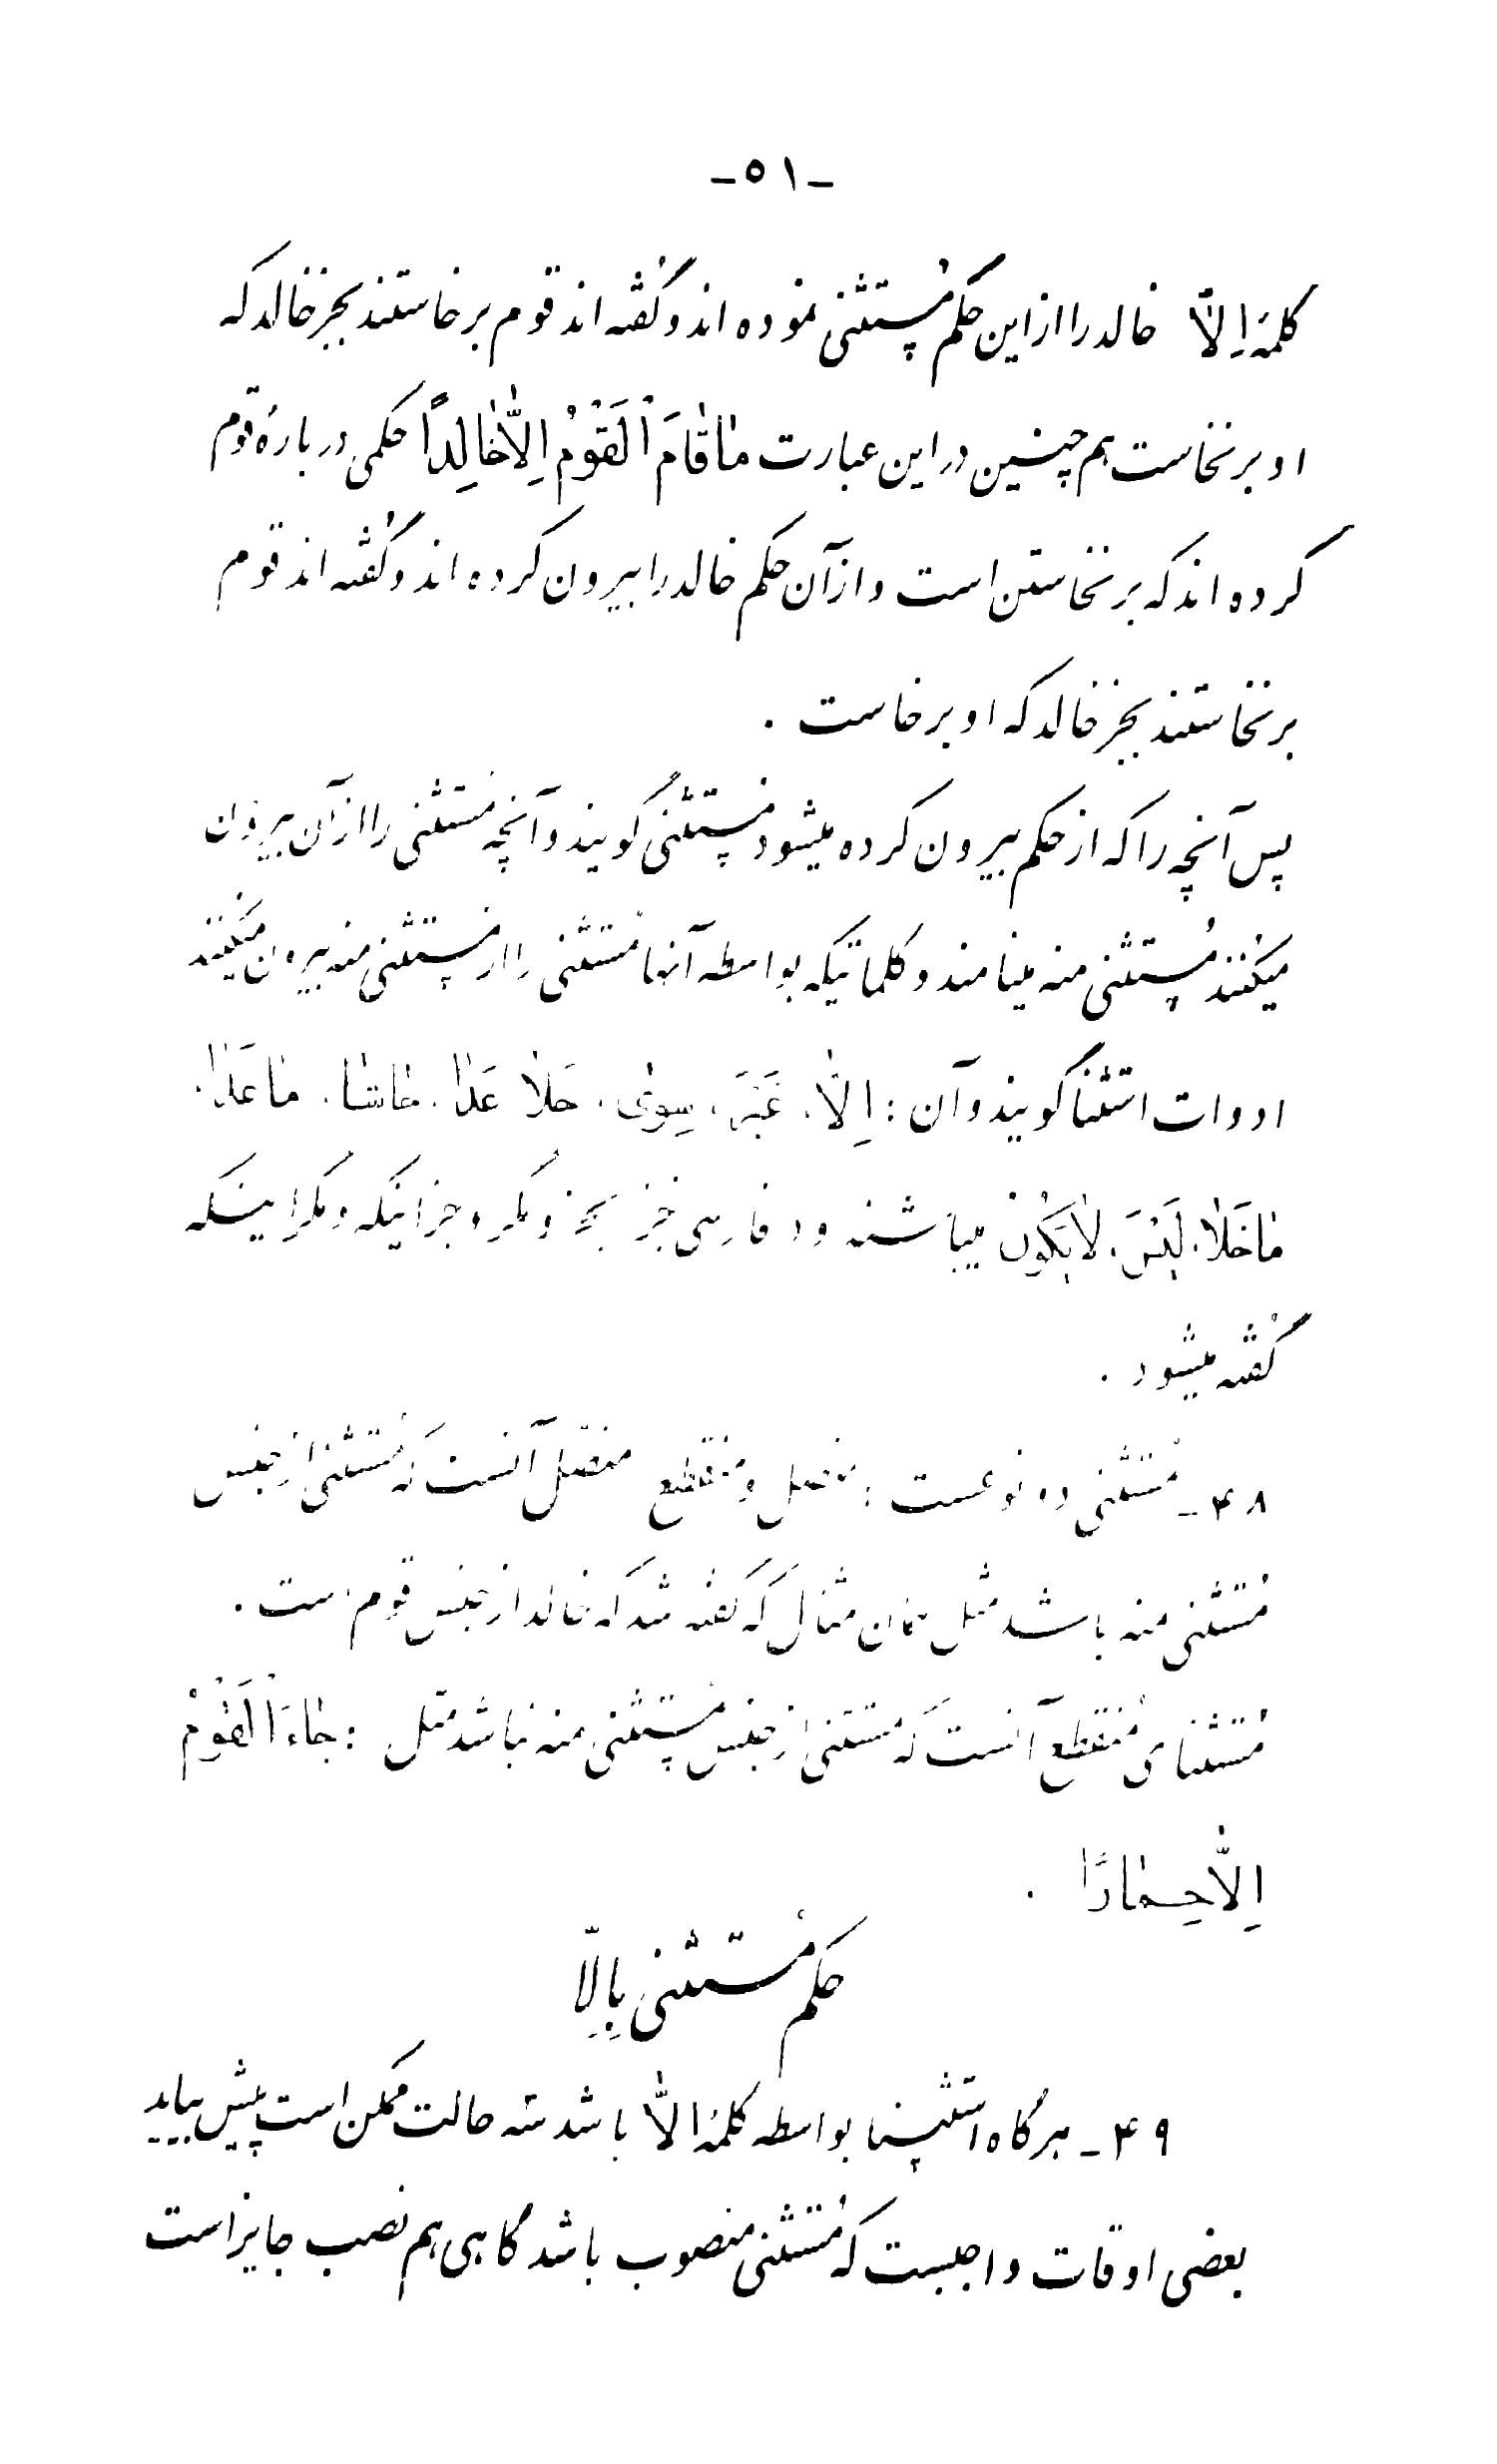 -۵۱-
کلمهٔ اِلاّ خالد را از این حکم مُستثنی نموده اند و گفته اند قوم برخاستند بجز خالد که
او برنخاست هم چنین در این عبارت مٰا قٰامَ اْلقَوْمُ اِلاّٰ خٰالِداً حکمی در بارهٔ قوم
کرده اند که برنخاستن است و از آن حکم خالد را بیرون کرده اند و گفته اند قوم
برنخاستند بجز خالد که او برخاست .
پس آنچه را که از حکم بیرون کرده میشود مُستثنی گویند و آنچه مُستثنی را از آن بیرون
میکنند مُستثنی منه مینامند و کلماتیکه بواسطه آنها مُستثنی را از مُستثنی منه بیرون میکنند
ادوات استثنا گویند و آن : اِلاّٰ، غَیْرَ، سِوٰی، خَلاٰ عَدٰا، حٰاشٰا، مٰا عَدٰا،
مٰا خَلاٰ، لَیْسَ، لاٰ یَکُونُ میباشند و در فارسی جز بجز و مگر و جز اینکه و مگر اینکه
گفته میشود .
۴۸- مُستثنی دو نوعست : متصل و منقطع متصل آنست که مُستثنی از جنس
مُستثنی منه باشد مثل همان مثال که گفته شد که خالد از جنس قوم است .
مُستثنای مُنقطع آنست که مستثنی از جنس مُستثنی منه نباشد مثل : جٰاءَ اْلقَوْمُ
اِلاّٰ حِمٰارًا .
حکم مُستثنی بِاِلاّ
۴۹- هرگاه استثنا بواسطه کلمهٔ الاّٰ باشد سه حالت ممکن است پیش بیاید
بعضی اوقات واجبست که مُستثنی منصوب باشد گاهی هم نصب جایز است